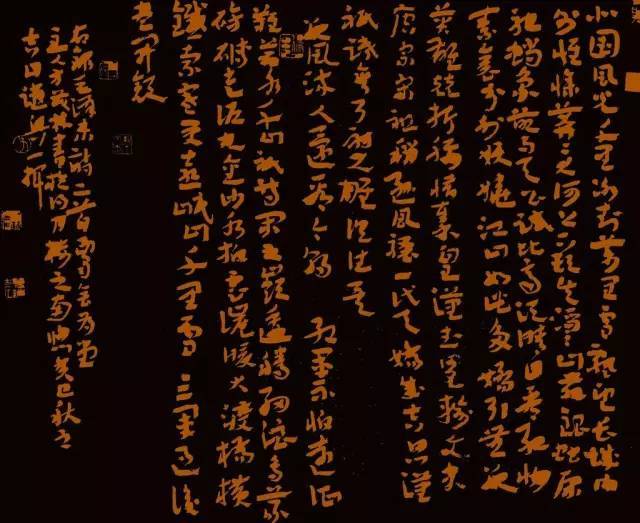 北国风光千里冰封万里雪飘望长城内
外惟余莽莽大河上下顿失滔滔山舞银蛇原
驰蜡象欲与天公试比高须晴日看红妆
素裹分外妖娆江山如此多娇引无数
英雄竞折腰惜秦皇汉武略输文采
唐宗宋祖稍逊风骚一代天骄成吉思汗
只识弯弓射大雕俱往矣
数风流人物还看今朝 红军不怕远征
难万水千山只等闲五岭逶迤腾细浪乌蒙
磅礴走泥丸金沙水拍云崖暖大渡桥横
铁索寒更喜岷山千里雪三军过后
尽开颜
右录毛泽东词二首
癸巳秋
吉日